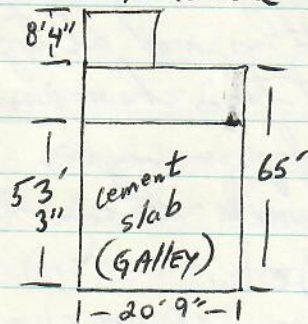 8'4"
53'
3"
65'
cement
slab
(GAlleY)
20'9"